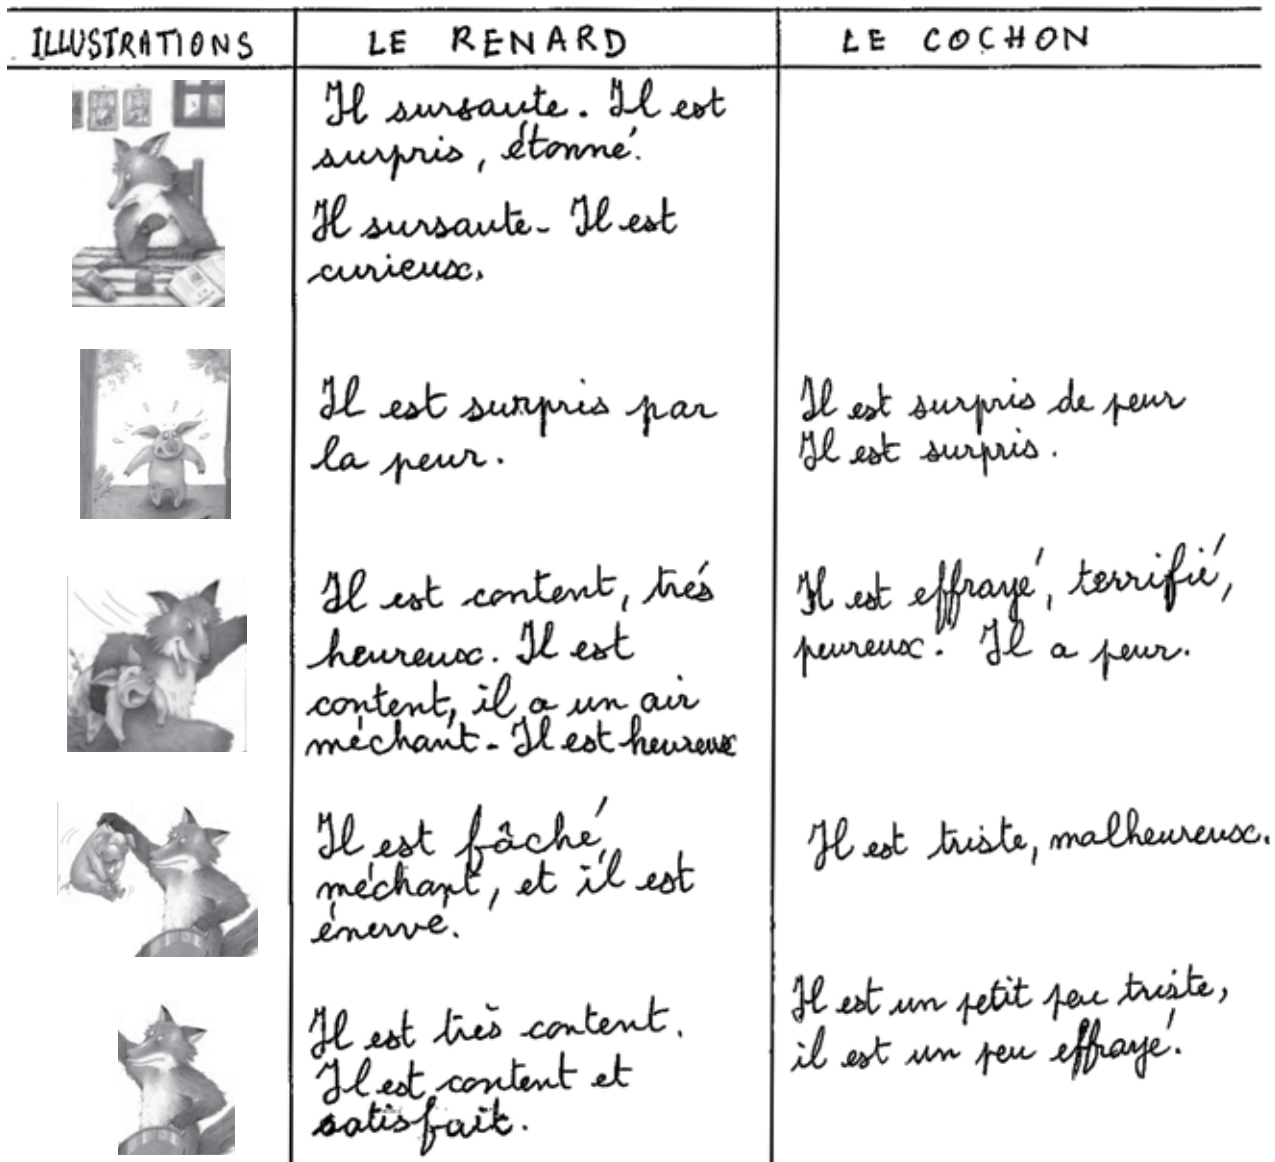 ILLUSTRATIONS
LE RENARD
LE COCHON
Il sursaute. Il est
surpris, étonné.
Il sursaute. Il est
curieux.
Il est surpris par
la peur.
Il est surpris de peur
Il est surpris.
Il est content, trés
heureux. Il est
content, il a un air
méchant. Il est heureux
Il est effrayé, terrifié,
peureux. Il a peur.
Il est fâché,
méchant, et il est
énervé.
Il est triste, malheureux.
Il est très content.
Il est content et
satisfait.
Il est un petit peu triste,
il est un peu effrayé.